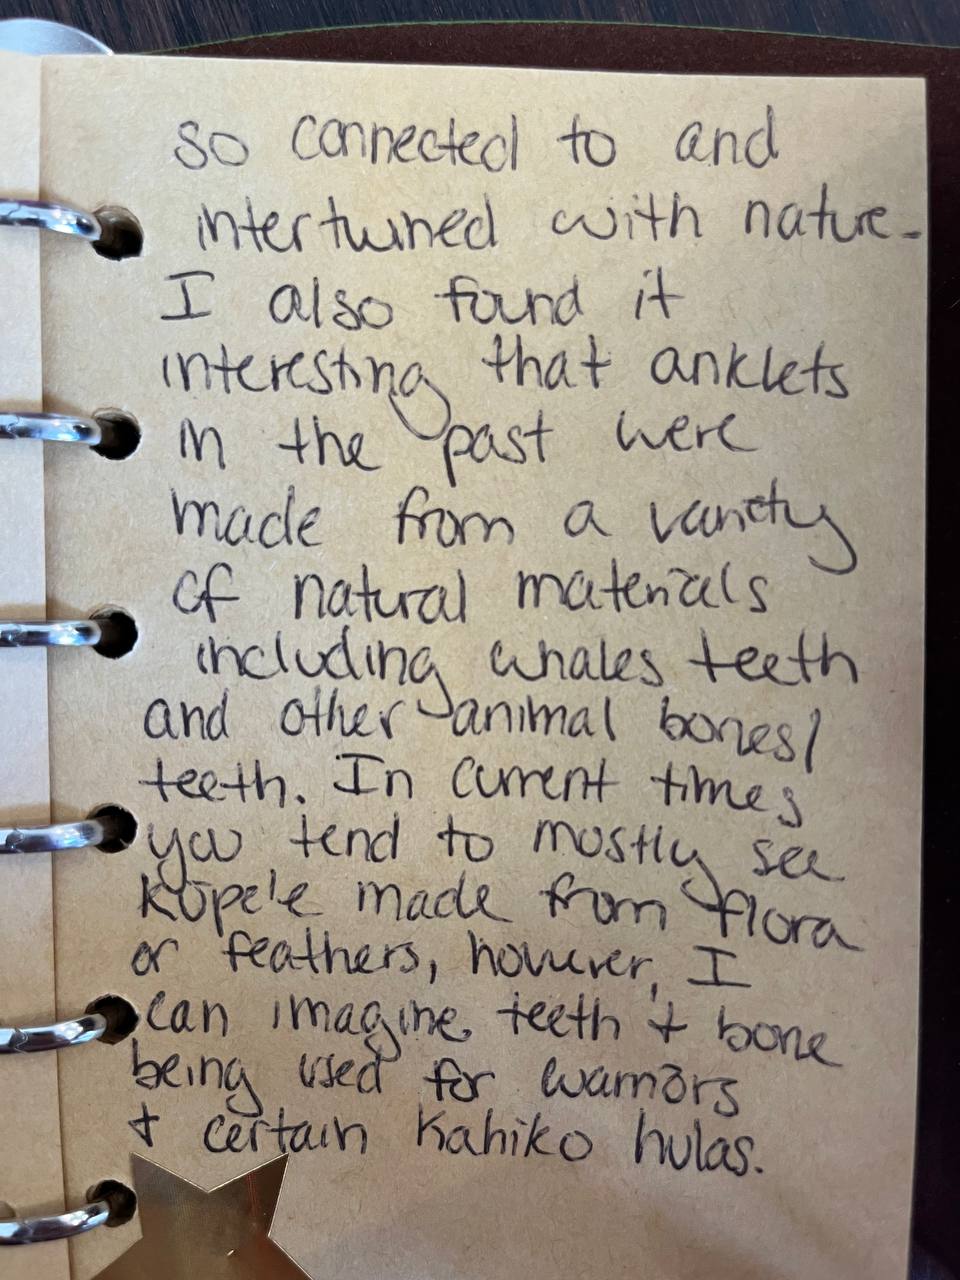 so connected to and
intertwined with nature.
I also found it
interesting that anklets
in the past were
made from a variety
of natural materials
including whales teeth
and other animal bones/
teeth. In current times
you tend to mostly see
Kūpe'e made from flora
or feathers, however, I
can imagine teeth + bone
being used for warriors
+ certain Kahiko hulas.